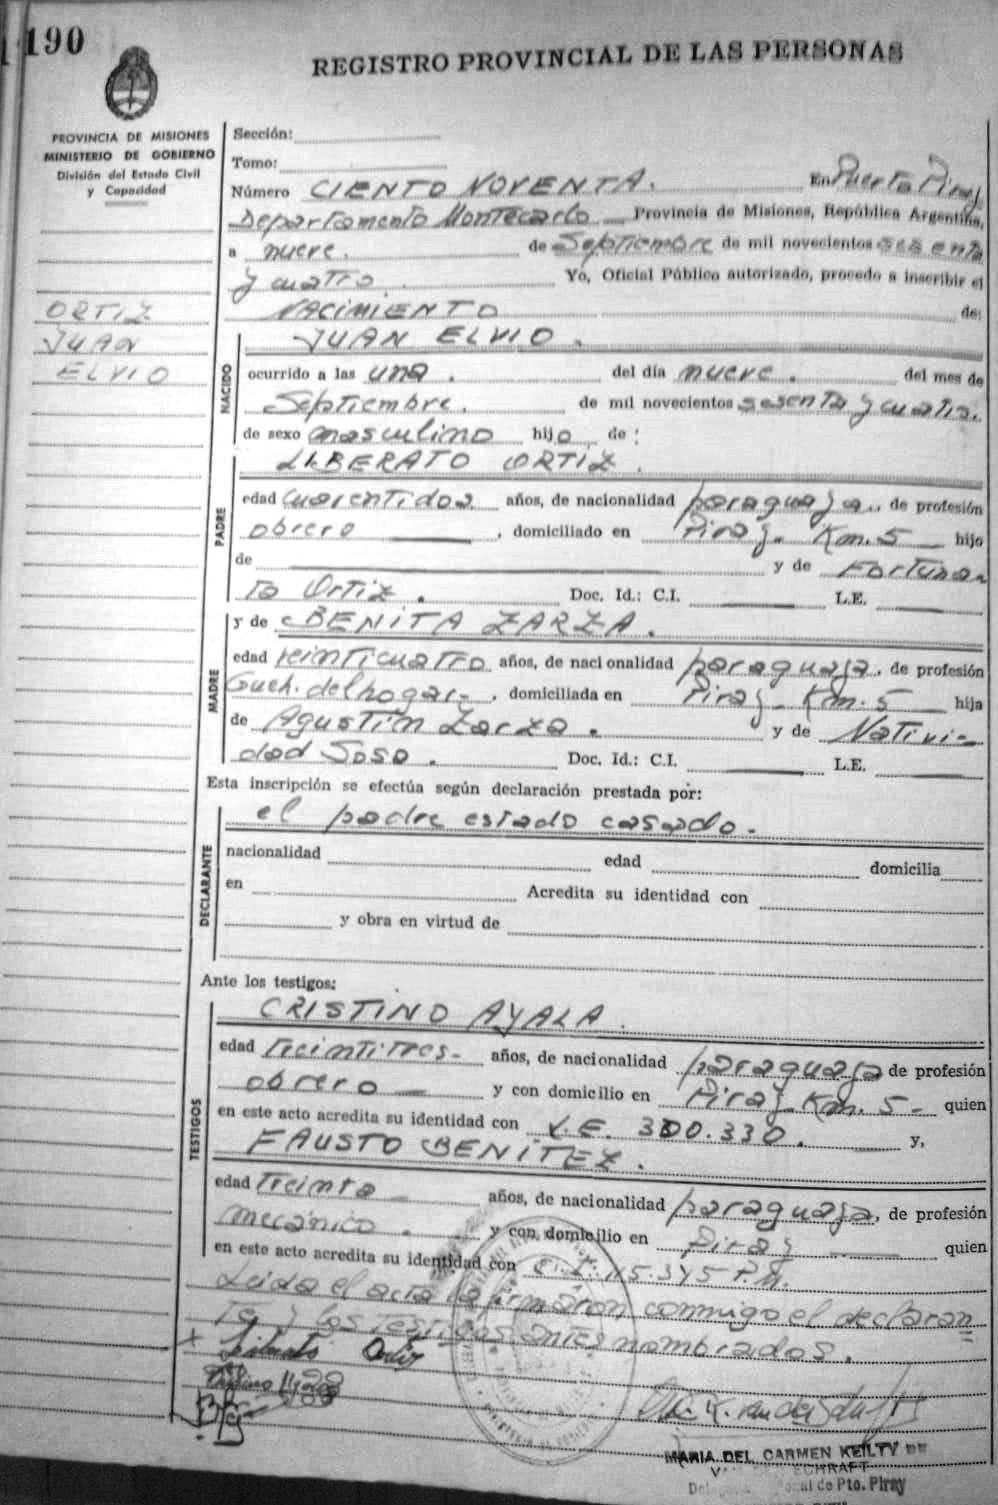 190
REGISTRO PROVINCIAL DE LAS PERSONAS
PROVINCIA DE MISIONES
MINISTERIO DE GOBIERNO
División del Estado Civil
y Capacidad
ORTIZ
JUAN
ELVIO
Sección:
Tomo:
Número CIENTO NOVENTA. En Puerto Piray
Departamento Montecarlo Provincia de Misiones, República Argentina,
a nueve. de Septiembre de mil novecientos sesenta
y cuatro Yo, Oficial Público autorizado, procedo a inscribir el
NACIMIENTO de:
JUAN ELVIO.
NACIDO
ocurrido a las una. del día nueve. del mes de
Septiembre. de mil novecientos sesenta y cuatro.
de sexo masculino hijo de:
LIBERATO ORTIZ.
PADRE
edad cuarentidos años, de nacionalidad paraguaya, de profesión
obrero, domiciliado en Piray Km. 5 hijo
de y de Fortuna-
to Ortiz. Doc. Id.: C.I. L.E.
MADRE
y de BENITA ZARZA.
edad veinticuatro años, de nacionalidad paraguaya, de profesión
Queh. del hogar-, domiciliada en Piray - Km. 5 hija
de Agustín Zarza. y de Nativi-
dad Sosa. Doc. Id.: C.I. L.E.
Esta inscripción se efectúa según declaración prestada por:
el padre estado casado.
DECLARANTE
nacionalidad edad domicilia
en Acredita su identidad con
y obra en virtud de
Ante los testigos:
CRISTINO AYALA.
TESTIGOS
edad treintitres- años, de nacionalidad paraguaya de profesión
obrero y con domicilio en Piray Km. 5- quien
en este acto acredita su identidad con 300.330. y,
FAUSTO BENITEZ.
edad treinta años, de nacionalidad paraguaya, de profesión
mecánico. y con domicilio en Piray quien
en este acto acredita su identidad con C.I. 115.345 P.M.
Leida el acta la firmaron conmigo el declaran
te y los testigos antes nombrados.
x Liberato Ortiz
MARIA DEL CARMEN KEILTY DE
Pto. Piray